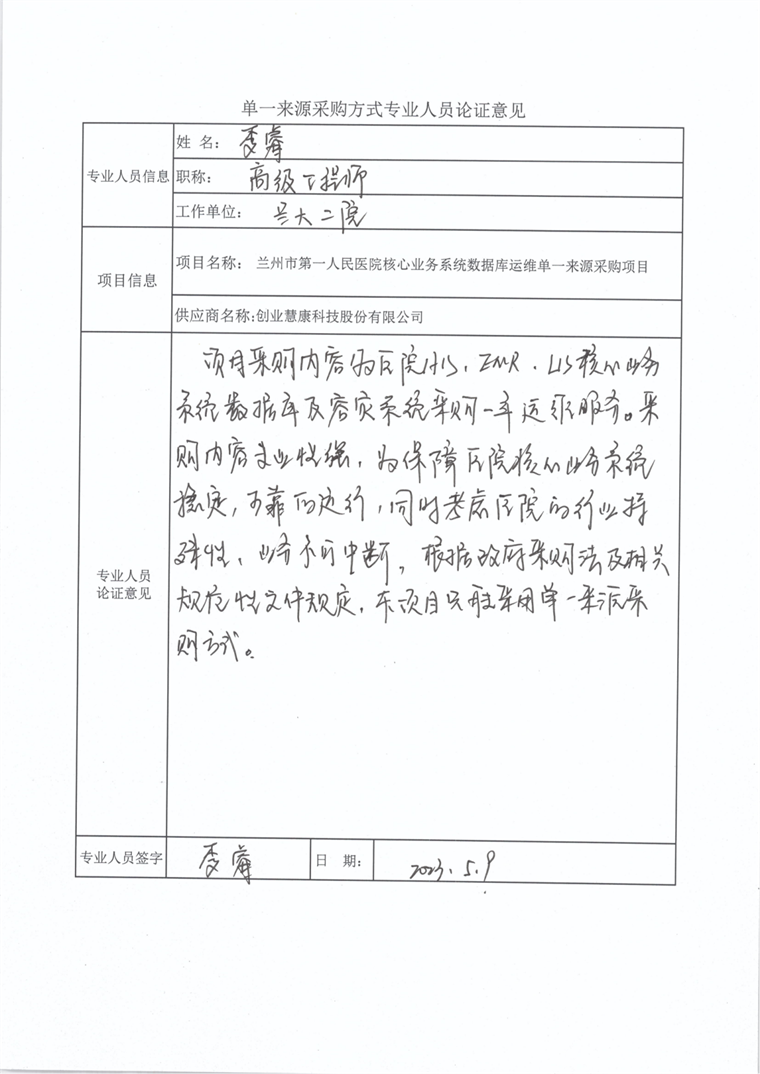 单一来源采购方式专业人员论证意见
专业人员信息
姓 名： 睿
职称： 高级工程师
工作单位： 兰大二院
项目信息
项目名称： 兰州市第一人民医院核心业务系统数据库运维单一来源采购项目
供应商名称:创业慧康科技股份有限公司
专业人员
论证意见
项目采购内容为医院HIS、EMR、LIS核心业务
系统数据库及容灾系统采购一年运维服务。采
购内容专业性强，为保障医院核心业务系统
稳定，可靠的运行，同时考虑医院的行业特
殊性、业务不可中断，根据政府采购法及相关
规范性文件规定，本项目只能采用单一来源采
购方式。
专业人员签字
睿
日 期：
2023.5.9